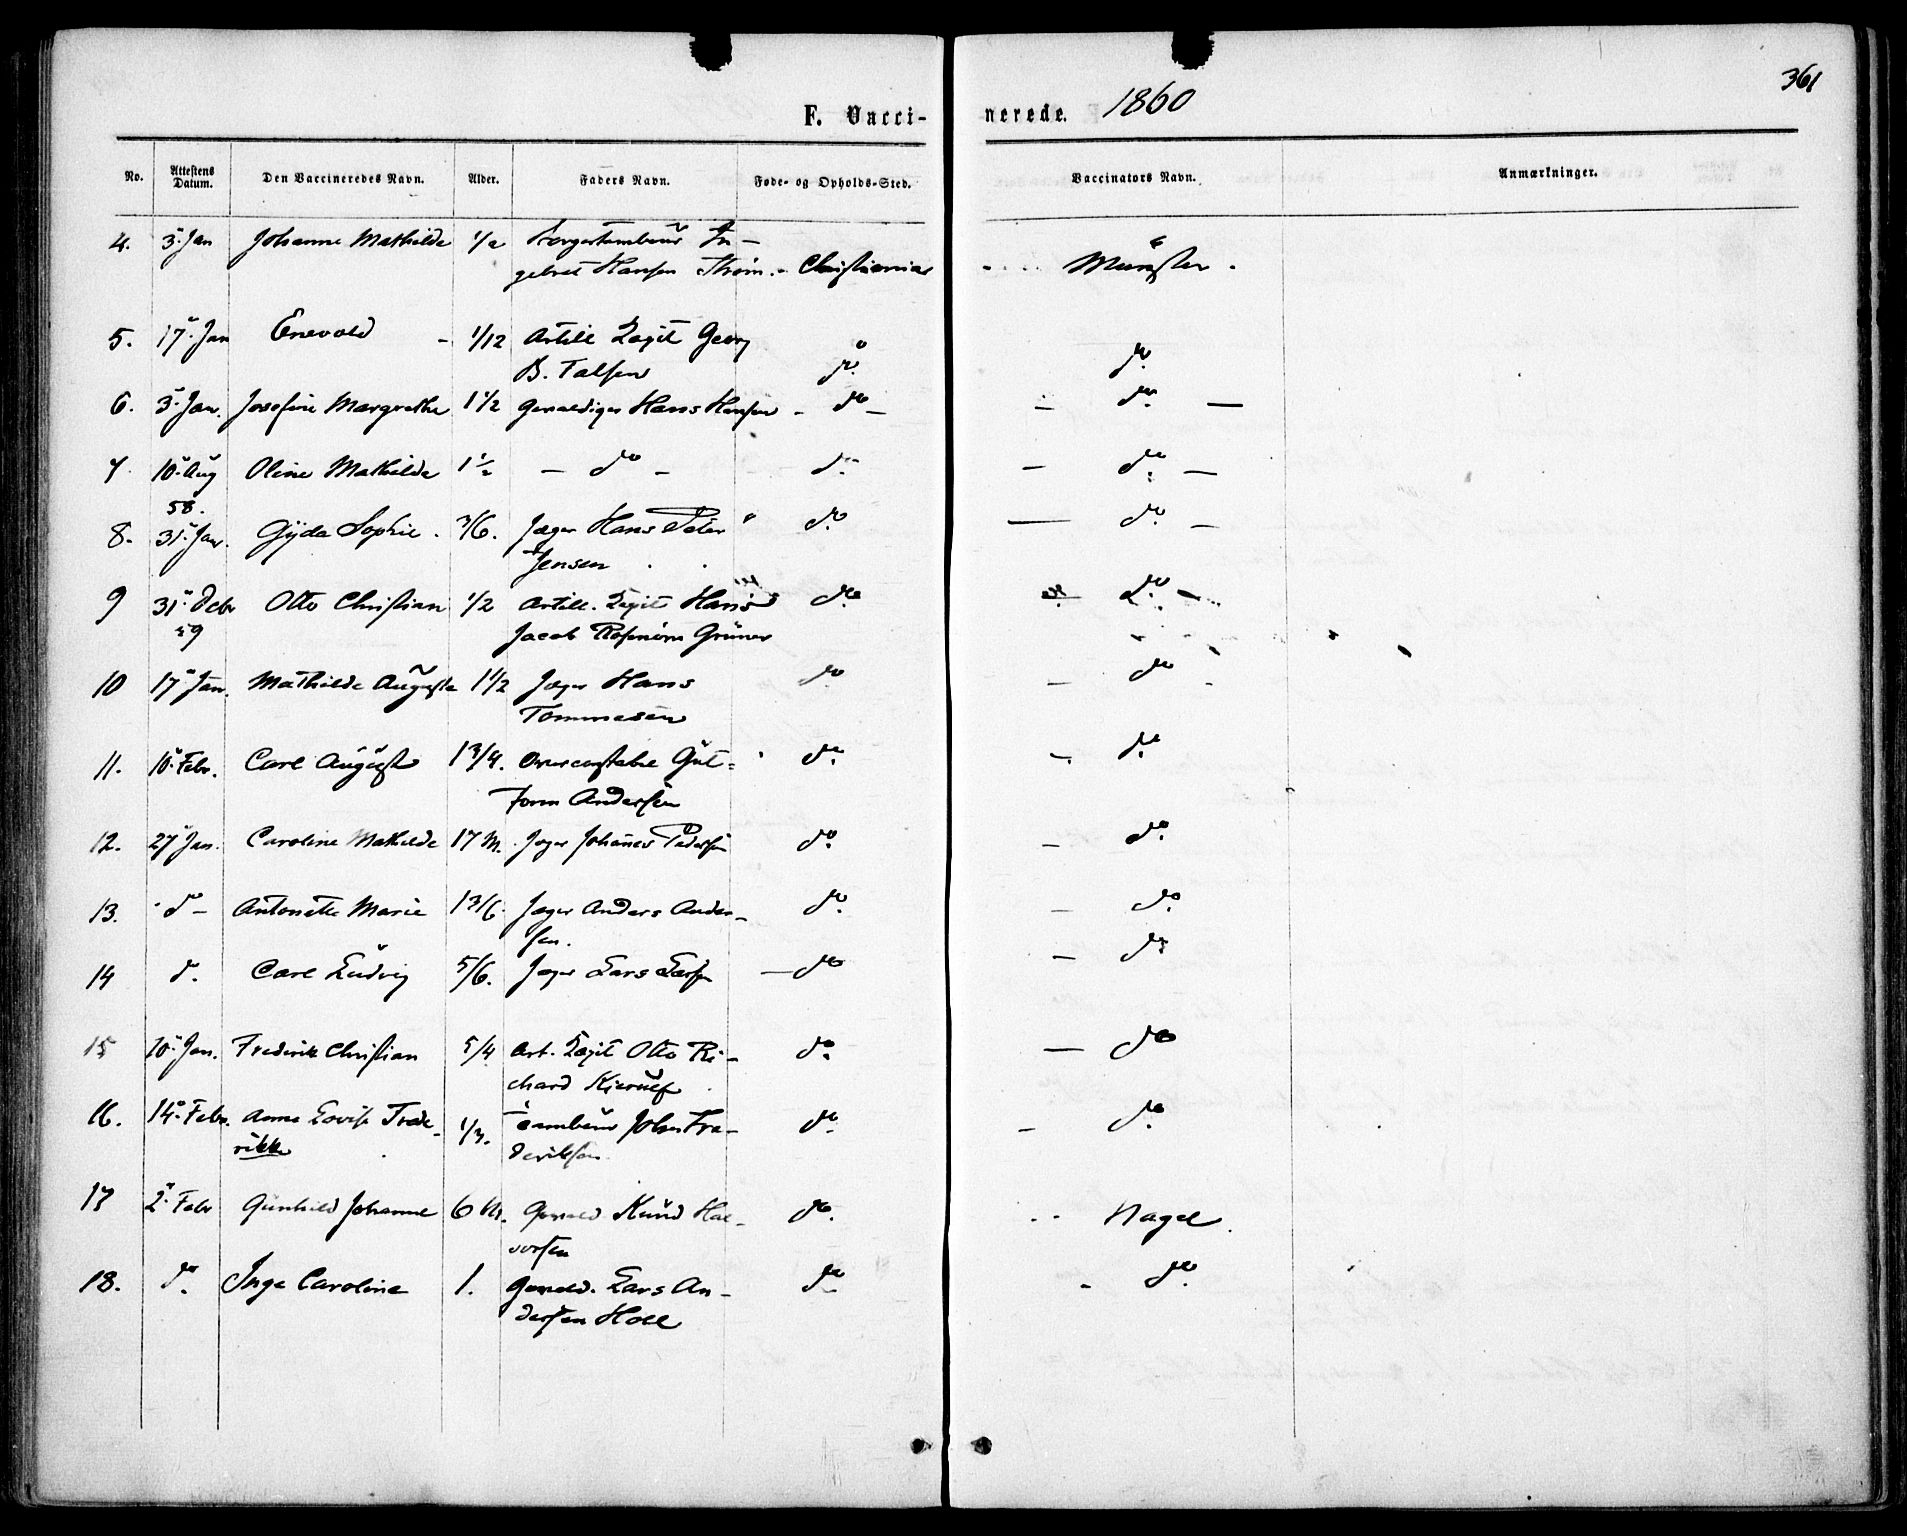 361
F. Vacci- nerede. 1860
No. Attestens Datum. Den Vaccineredes Navn. Alder. Faders Navn. Føde- og Opholds-Sted. Vaccinators Navn. Anmærkninger.
4. 3. Jan Johanne Mathilde 1/2 In-
gebret Hansen Christiania Münster.
5. 17. Jan Enevold 1/12 Artill Capit Georg
B. Falsen do. do.
6. 3. Jan. Josefine Margrethe 1 1/2 Gevaldiger Hans Hansen - do - - do. -
7. 10. Aug Oline Mathilde 1 1/2 - do - do. - do. -
58.
8. 31. Jan. Gÿda Sophie. 3/6. Jæger Hans Peter do. - do. -
Jensen
9 31. Debr Otto Christian 1/2 Artill. Capit Hans do. do.
59 Jacob Rosenørn Grüner
10 17. Jan. Mathilde Auguste 1 1/2 Jæger Hans do - do
Tommesen
11. 10. Febr. Carl August 1 3/4. Overconstabel Gut= do. - do.
torm Andersen
12. 27 Jan. Caroline Mathilde 17 M. Jæger Johannes Pedersen do. - do.
13. do - Antonette Marie 1 3/6 Jæger Anders Ander- do. - do.
sen.
14 do. Carl Ludvig 5/6. Jæger Lars Larsen - do - do.
15 10. Jan. Frederik Christian 5/4 Art. Capit Otto Ri- do. - do
chard Kierulf
16. 14. Febr. Anna Lovise Frede- 1/3. Tambour Johan Fre- do. - do.
rikke deriksen
17 2. Febr Gunhild Johanne 6 M. Gevald Knud Hal- do. Nagel.
vorsen
18. do. Inga Caroline 1. Gevald. Lars An- do. - do.
dersen Holl